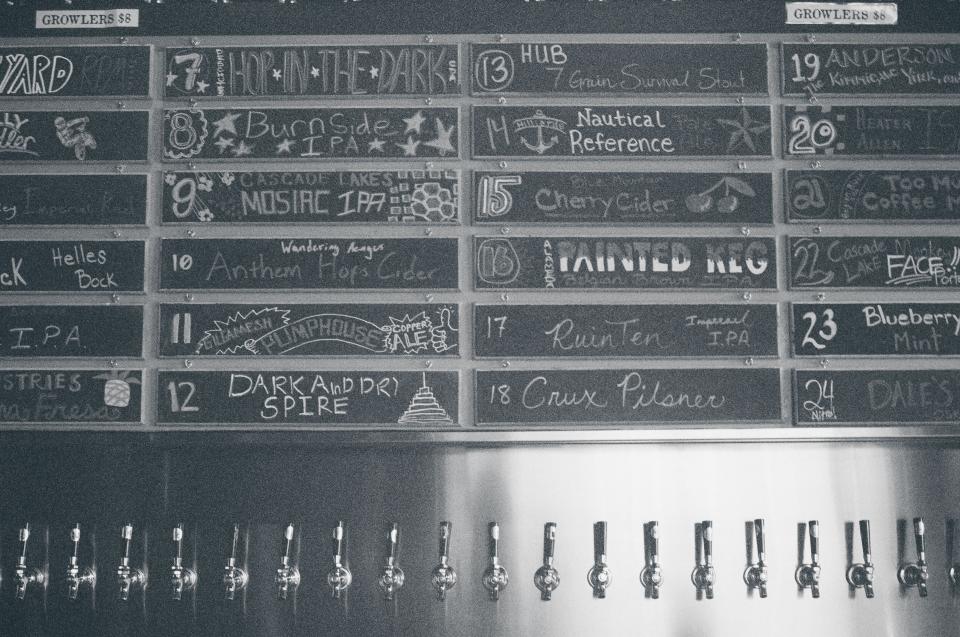 GROWLERS $8
GROWLERS $8
YARD
Helles
CK Bock
I.P.A.
STRIES
Fresa
7 HOP IN THE DARK
8 BurnSide
IPA
CASCADE LAKES
9 MOSIAC IPA
Wandering Aengus
10 Anthem Hops Cider
11 GILGAMESH PUMPHOUSE COPPER
ALE
12 DARK AnD DRY
SPIRE
13 HUB
7 Grain Survival Stout
14 Nautical
Reference
15 Cherry Cider
16 PAINTED KEG
Belgian Brown IPA
17 RuinTen Imperial
IPA
18 Crux Pilsner
19 ANDERSON
The Kimmie, the Yink, and
20 HEATER
ALLEN
21 TOO MU
Coffee M
22 Cascade
LAKE FACE
Porte
23 Blueberry
Mint
24 DALE'S
Nitro!